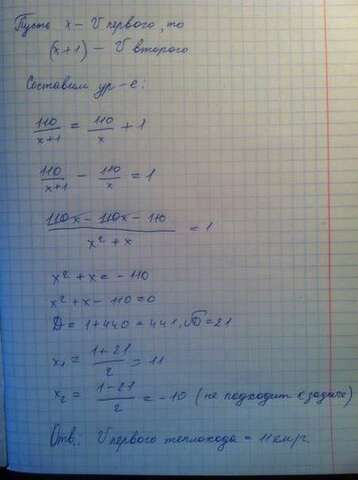 Пусть x - V первого, то
(x+1) - V второго
Составим ур-е:
110/x+1 = 110/x + 1
110/x+1 - 110/x = 1
110x - 110x - 110/x² + x = 1
x² + x = -110
x² + x - 110 = 0
D = 1 + 440 = 441, √D = 21
x₁ = 1+21/2 = 11
x₂ = 1-21/2 = -10 (не подходит к задаче)
Отв.: V первого теплохода = 11 км/ч.